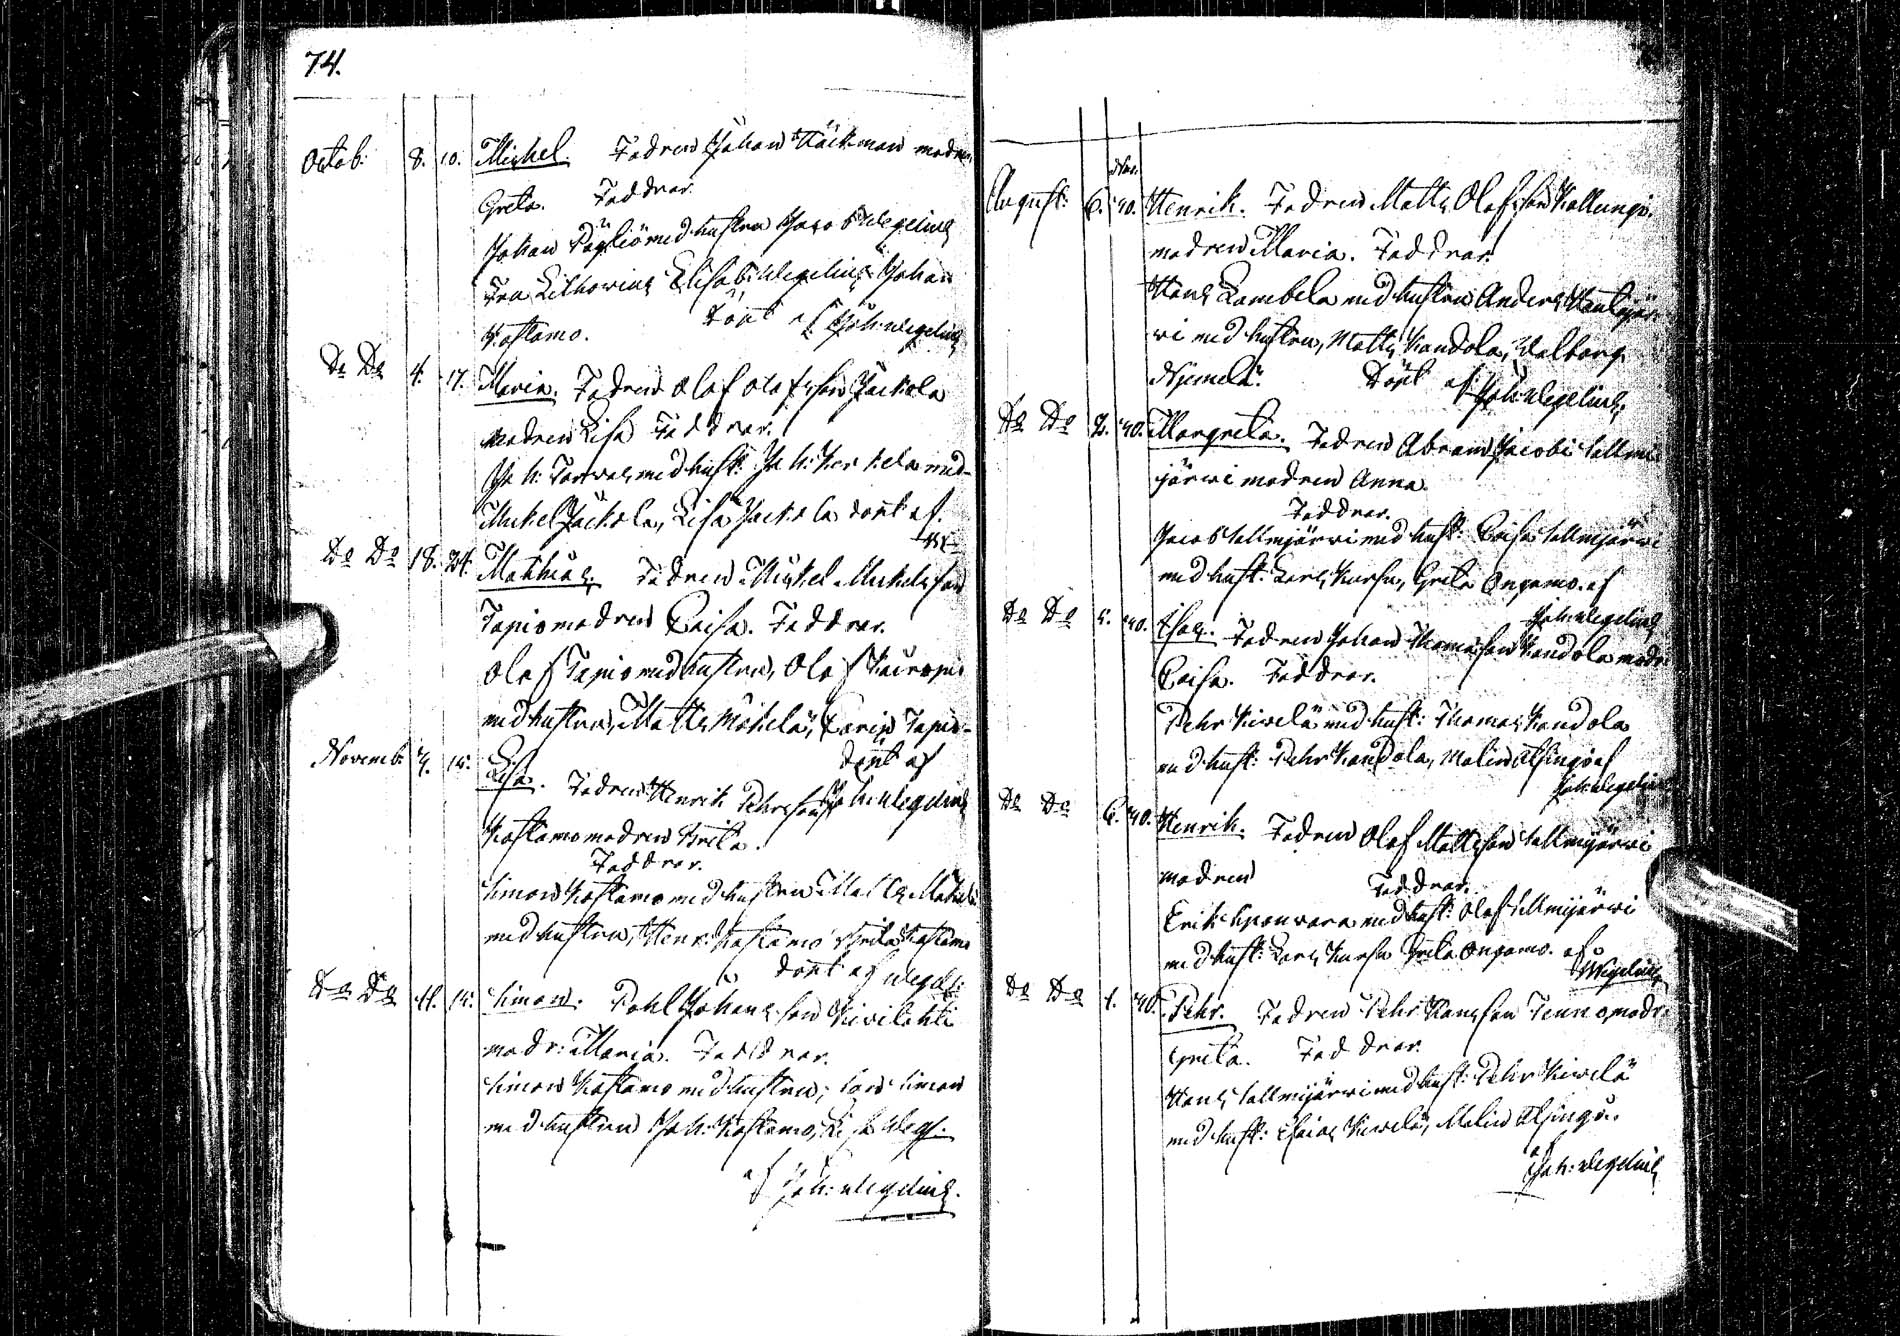 74.
Octob: 8. 10. Michel. Fadren Johan Häckman modren
Greta. Faddrar.
Johan Pöyliö med hustru Jacob Wegelius
Fru Lithovius Elisab: Wegelius Johan
Kostamo. Döpt af Joh: Wegelius
Do Do 4. 17. Maria. Fadren Olof Olofsson Jackola
modren Lisa Faddrar.
Joh: Torvas med hust: Joh: Kerkela med
Mickel Jackola, Lisa Jackola döpt af.
Do Do 18. 24. Mathias. Fadren Mickel Mickelsson
Tapio modren Caisa. Faddrar.
Olof Tapio med hustru, Olof
med hustru, Matts Mäkelä, Carin Tapio
döpt af
Novemb: 4. 15. Lisa. Fadren Henrik Pehrsson Joh: Wegelius
Kostamo modren Brita.
Faddrar.
Simon Kostamo med hustru Matts Mäkelä
med hustru, Henr: Kostamo Brita Kostamo
döpt af Wegel:
Do Do 11. 15. Simon. Pohl Johansson Kivilahti
modr: Maria. Faddrar.
Simon Kostamo med hustru, Simon
med hustru Joh: Kostamo, Lisa Weg:
af Joh: Wegelius.
August: 6. 40. Henrik. Fadren Matts Olofsson Kallungi.
modren Maria. Faddrar.
Hans Lambela med hustru Anders Hautajär-
vi med hustru, Matts Kandola, Walborg
Niemelä. Döpt af Joh: Wegelius.
Do Do 2. 40. Margreta. Fadren Abram Jacobi Sallmi
järvi modren Anna.
Faddrar.
Jacob Sallmijärvi med hust: Caisa Sallmijärvi
med hust: Lars Kursu, Greta Ongamo. af
Joh: Wegelius
Do Do 5. 40. Esai. Fadren Johan Thomasson Kandola modr:
Caisa. Faddrar.
Pehr Kivelä med hust: Thomas Kandola
med hust: Pehr Kandola, Malin Alsingö af
Joh: Wegelius
Do Do 6. 40. Henrik. Fadren Olof Mattsson Sallmijärvi
modren Faddrar.
Erik Aponvara med hust: Olof Sallmijärvi
med hust: Lars Kursu Greta Ongamo. af
Wegelius
Do Do 1. 40. Pehr. Fadren Pehr Hansson Tennö, modr:
Greta. Faddrar.
Hans Sallmijärvi med hust: Pehr Kivelä
med hust: Esaias Kivelä, Malin Alsingö.
af
Joh: Wegelius